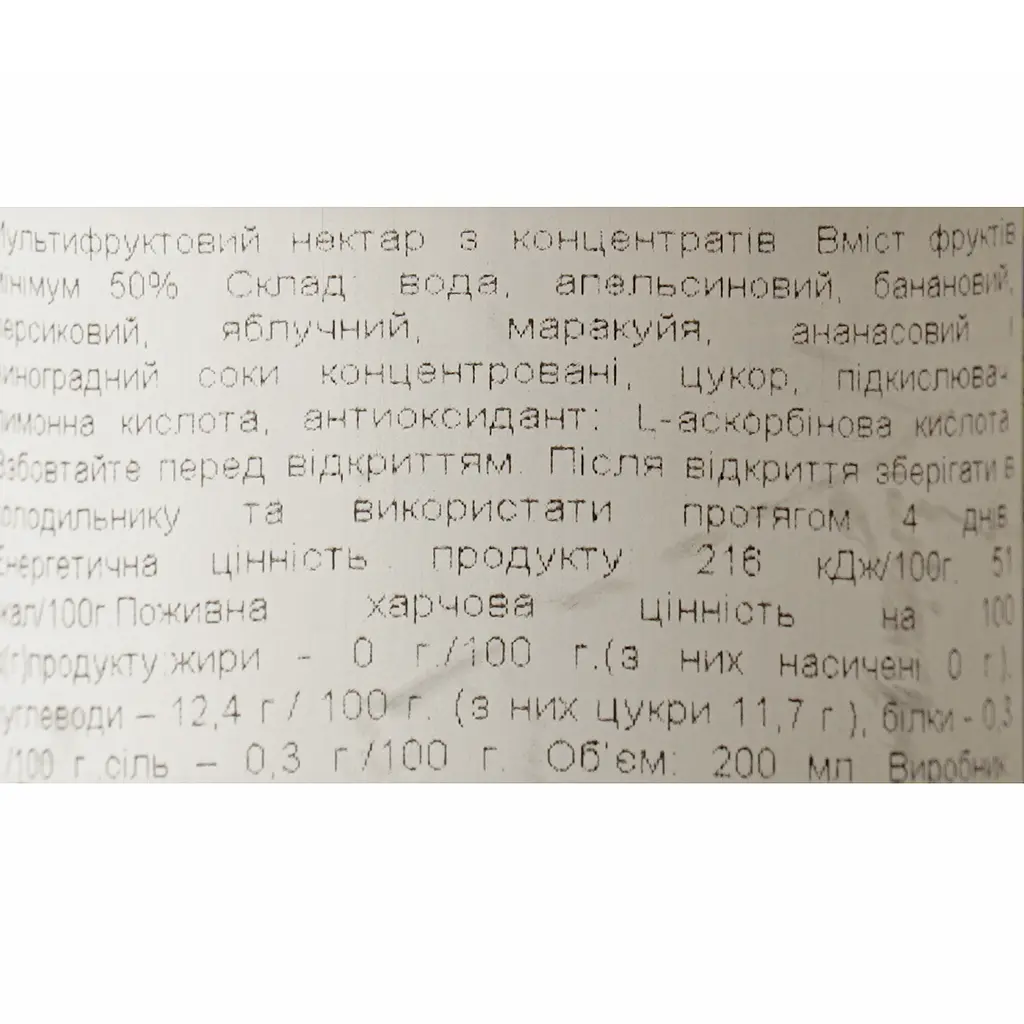 Мультифруктовий нектар з концентратів Вміст фруктів
мінімум 50% Склад: вода, апельсиновий, банановий,
персиковий, яблучний, маракуйя, ананасовий і
виноградний соки концентровані, цукор, підкислюва-
лимонна кислота, антиоксидант: L-аскорбінова кислота
Взбовтайте перед відкриттям. Після відкриття зберігати в
холодильнику та використати протягом 4 днів.
Енергетична цінність продукту: 216 кДж/100г. 51
ккал/100г.Поживна харчова цінність на 100
(г)продукту:жири - 0 г./100 г.(з них насичені 0 г).
вуглеводи – 12,4 г / 100 г. (з них цукри 11,7 г ), білки - 0,3
г/100 г.,сіль – 0,3 г /100 г. Об'єм: 200 мл Виробник: